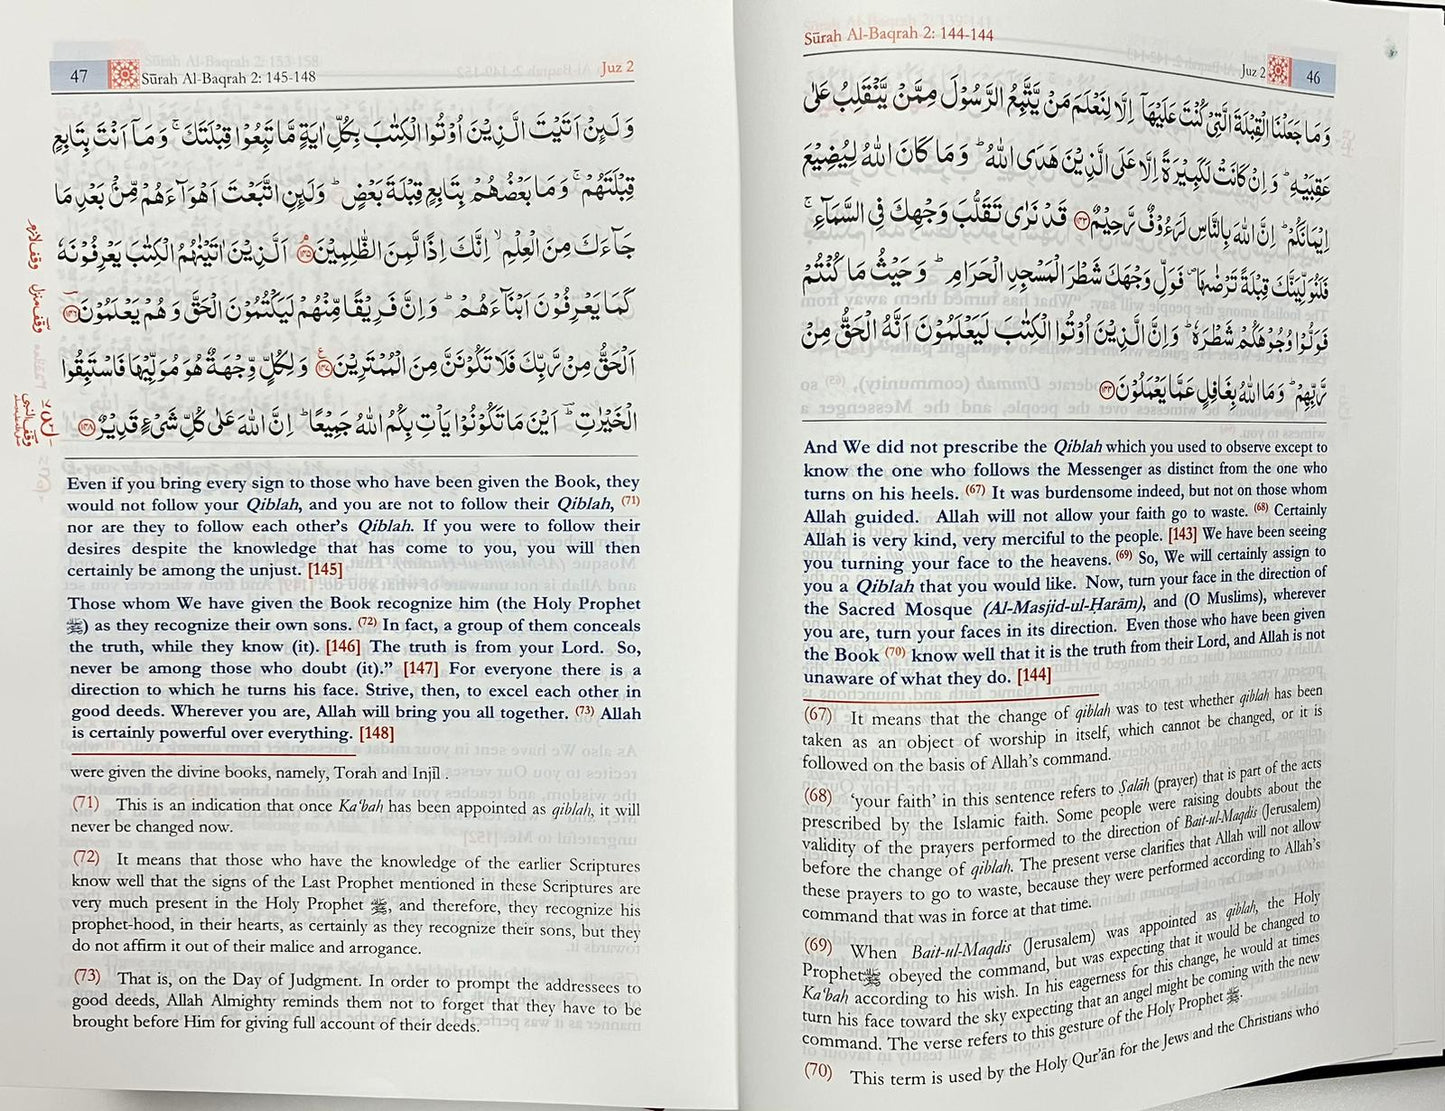 Sūrah Al-Baqrah 2: 144-144
Juz 2
46
وَمَا جَعَلْنَا الْقِبْلَةَ الَّتِیْ كُنْتَ عَلَیْهَاۤ اِلَّا لِنَعْلَمَ مَنْ یَّتَّبِعُ الرَّسُوْلَ مِمَّنْ یَّنْقَلِبُ عَلٰی
عَقِبَیْهِ ؕ وَ اِنْ كَانَتْ لَكَبِیْرَةً اِلَّا عَلَی الَّذِیْنَ هَدَی اللّٰهُ ؕ وَمَا كَانَ اللّٰهُ لِیُضِیْعَ
اِیْمَانَكُمْ ؕ اِنَّ اللّٰهَ بِالنَّاسِ لَرَءُوْفٌ رَّحِیْمٌ ﴿۱۴۳﴾ قَدْ نَرٰی تَقَلُّبَ وَجْهِكَ فِی السَّمَآءِ ۚ
فَلَنُوَلِّیَنَّكَ قِبْلَةً تَرْضٰىهَا ۪ فَوَلِّ وَجْهَكَ شَطْرَ الْمَسْجِدِ الْحَرَامِ ؕ وَحَیْثُ مَا كُنْتُمْ
فَوَلُّوْا وُجُوْهَكُمْ شَطْرَهٗ ؕ وَاِنَّ الَّذِیْنَ اُوْتُوا الْكِتٰبَ لَیَعْلَمُوْنَ اَنَّهُ الْحَقُّ مِنْ
رَّبِّهِمْ ؕ وَمَا اللّٰهُ بِغَافِلٍ عَمَّا یَعْمَلُوْنَ ﴿۱۴۴﴾
And We did not prescribe the Qiblah which you used to observe except to
know the one who follows the Messenger as distinct from the one who
turns on his heels. (67) It was burdensome indeed, but not on those whom
Allah guided. Allah will not allow your faith go to waste. (68) Certainly
Allah is very kind, very merciful to the people. [143] We have been seeing
you turning your face to the heavens. (69) So, We will certainly assign to
you a Qiblah that you would like. Now, turn your face in the direction of
the Sacred Mosque (Al-Masjid-ul-Ḥarām), and (O Muslims), wherever
you are, turn your faces in its direction. Even those who have been given
the Book (70) know well that it is the truth from their Lord, and Allah is not
unaware of what they do. [144]
(67) It means that the change of qiblah was to test whether qiblah has been
taken as an object of worship in itself, which cannot be changed, or it is
followed on the basis of Allah's command.
(68) 'your faith' in this sentence refers to Ṣalāh (prayer) that is part of the acts
prescribed by the Islamic faith. Some people were raising doubts about the
validity of the prayers performed to the direction of Bait-ul-Maqdis (Jerusalem)
before the change of qiblah. The present verse clarifies that Allah will not allow
these prayers to go to waste, because they were performed according to Allah's
command that was in force at that time.
(69) When Bait-ul-Maqdis (Jerusalem) was appointed as qiblah, the Holy
Prophet ﷺ obeyed the command, but was expecting that it would be changed to
Ka'bah according to his wish. In his eagerness for this change, he would at times
turn his face toward the sky expecting that an angel might be coming with the new
command. The verse refers to this gesture of the Holy Prophet ﷺ.
(70) This term is used by the Holy Qur'ān for the Jews and the Christians who
47
Sūrah Al-Baqrah 2: 145-148
Juz 2
وَلَئِنْ اَتَیْتَ الَّذِیْنَ اُوْتُوا الْكِتٰبَ بِكُلِّ اٰیَةٍ مَّا تَبِعُوْا قِبْلَتَكَ ۚ وَمَاۤ اَنْتَ بِتَابِعٍ
قِبْلَتَهُمْ ۚ وَمَا بَعْضُهُمْ بِتَابِعٍ قِبْلَةَ بَعْضٍ ؕ وَلَئِنِ اتَّبَعْتَ اَهْوَآءَهُمْ مِّنْۢ بَعْدِ مَا
جَآءَكَ مِنَ الْعِلْمِ ۙ اِنَّكَ اِذًا لَّمِنَ الظّٰلِمِیْنَ ﴿۱۴۵﴾ اَلَّذِیْنَ اٰتَیْنٰهُمُ الْكِتٰبَ یَعْرِفُوْنَهٗ
كَمَا یَعْرِفُوْنَ اَبْنَآءَهُمْ ؕ وَاِنَّ فَرِیْقًا مِّنْهُمْ لَیَكْتُمُوْنَ الْحَقَّ وَهُمْ یَعْلَمُوْنَ ﴿۱۴۶﴾
اَلْحَقُّ مِنْ رَّبِّكَ فَلَا تَكُوْنَنَّ مِنَ الْمُمْتَرِیْنَ ﴿۱۴۷﴾ وَلِكُلٍّ وِّجْهَةٌ هُوَ مُوَلِّیْهَا فَاسْتَبِقُوا
الْخَیْرٰتِ ؕ اَیْنَ مَا تَكُوْنُوْا یَاْتِ بِكُمُ اللّٰهُ جَمِیْعًا ؕ اِنَّ اللّٰهَ عَلٰی كُلِّ شَیْءٍ قَدِیْرٌ ﴿۱۴۸﴾
وقف لازم
وقف منزل
Even if you bring every sign to those who have been given the Book, they
would not follow your Qiblah, and you are not to follow their Qiblah, (71)
nor are they to follow each other's Qiblah. If you were to follow their
desires despite the knowledge that has come to you, you will then
certainly be among the unjust. [145]
Those whom We have given the Book recognize him (the Holy Prophet
ﷺ) as they recognize their own sons. (72) In fact, a group of them conceals
the truth, while they know (it). [146] The truth is from your Lord. So,
never be among those who doubt (it)." [147] For everyone there is a
direction to which he turns his face. Strive, then, to excel each other in
good deeds. Wherever you are, Allah will bring you all together. (73) Allah
is certainly powerful over everything. [148]
were given the divine books, namely, Torah and Injīl .
(71) This is an indication that once Ka'bah has been appointed as qiblah, it will
never be changed now.
(72) It means that those who have the knowledge of the earlier Scriptures
know well that the signs of the Last Prophet mentioned in these Scriptures are
very much present in the Holy Prophet ﷺ, and therefore, they recognize his
prophet-hood, in their hearts, as certainly as they recognize their sons, but they
do not affirm it out of their malice and arrogance.
(73) That is, on the Day of Judgment. In order to prompt the addressees to
good deeds, Allah Almighty reminds them not to forget that they have to be
brought before Him for giving full account of their deeds.